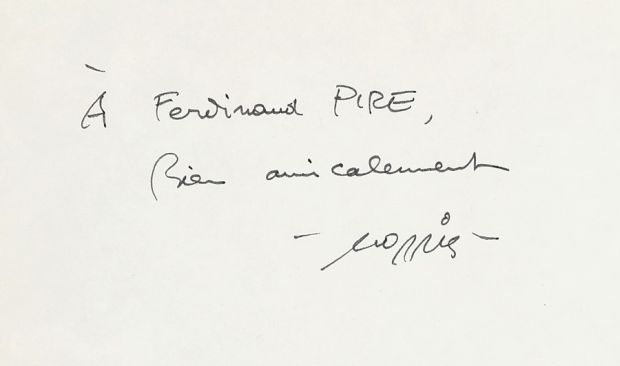 À Ferdinand PIRE,
Bien amicalement
- Morris -